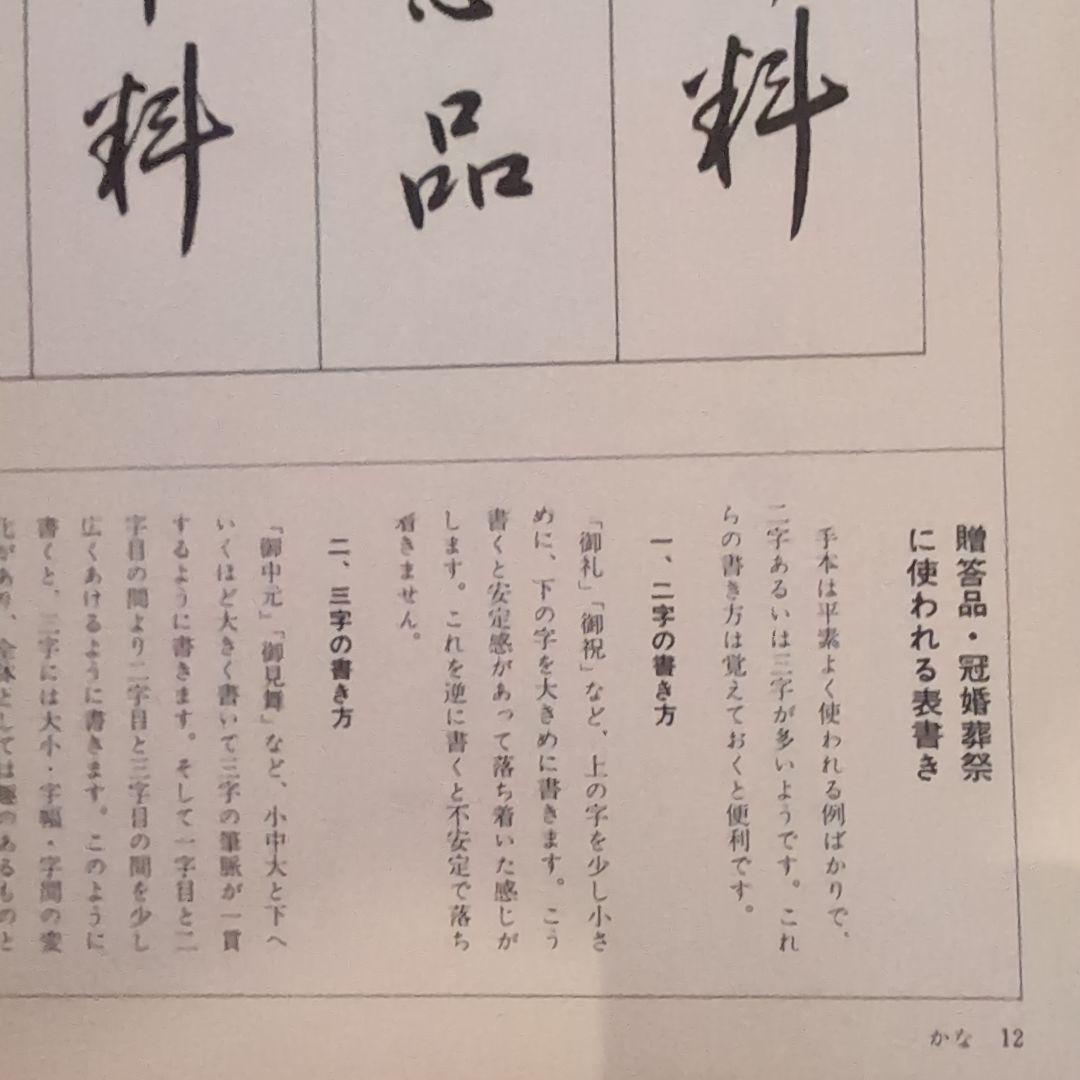 料
品
料
贈答品・冠婚葬祭
に使われる表書き
手本は平素よく使われる例ばかりで、
二字あるいは三字が多いようです。これ
らの書き方は覚えておくと便利です。
一、二字の書き方
「御礼」「御祝」など、上の字を少し小さ
めに、下の字を大きめに書きます。こう
書くと安定感があって落ち着いた感じが
します。これを逆に書くと不安定で落ち
着きません。
二、三字の書き方
「御中元」「御見舞」など、小中大と下へ
いくほど大きく書いて三字の筆脈が一貫
するように書きます。そして一字目と二
字目の間より二字目と三字目の間を少し
広くあけるように書きます。このように
書くと、三字には大小・字幅・字間の変
かな 12